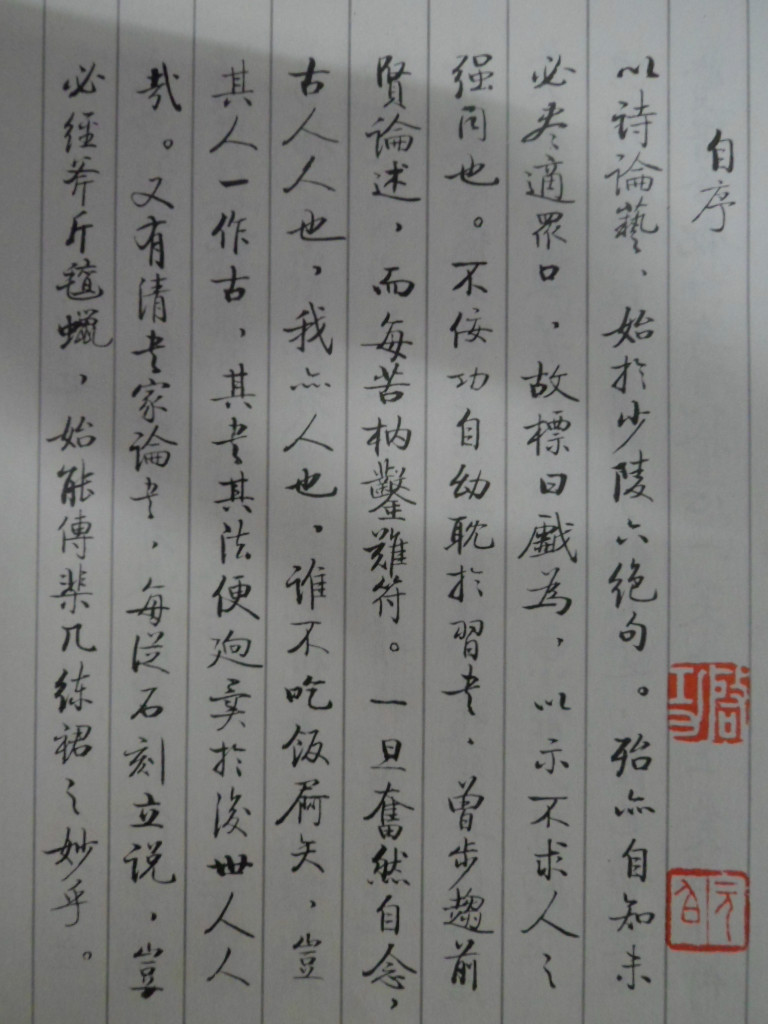 自序
以詩論藝、始於少陵六絕句。殆亦自知未
必盡適眾口，故標曰戲為，以示不求人之
强同也。不佞功自幼耽於習書，曾步趨前
賢論述，而每苦枘鑿難符。一旦奮然自念，
古人人也，我亦人也，誰不吃飯屙矢，豈
其人一作古，其書其法便迥異於後世人人
哉。又有清書家論書，每從石刻立説，豈
必經斧斤氊蠟，始能傳棐几練裙之妙乎。
啟功
元白